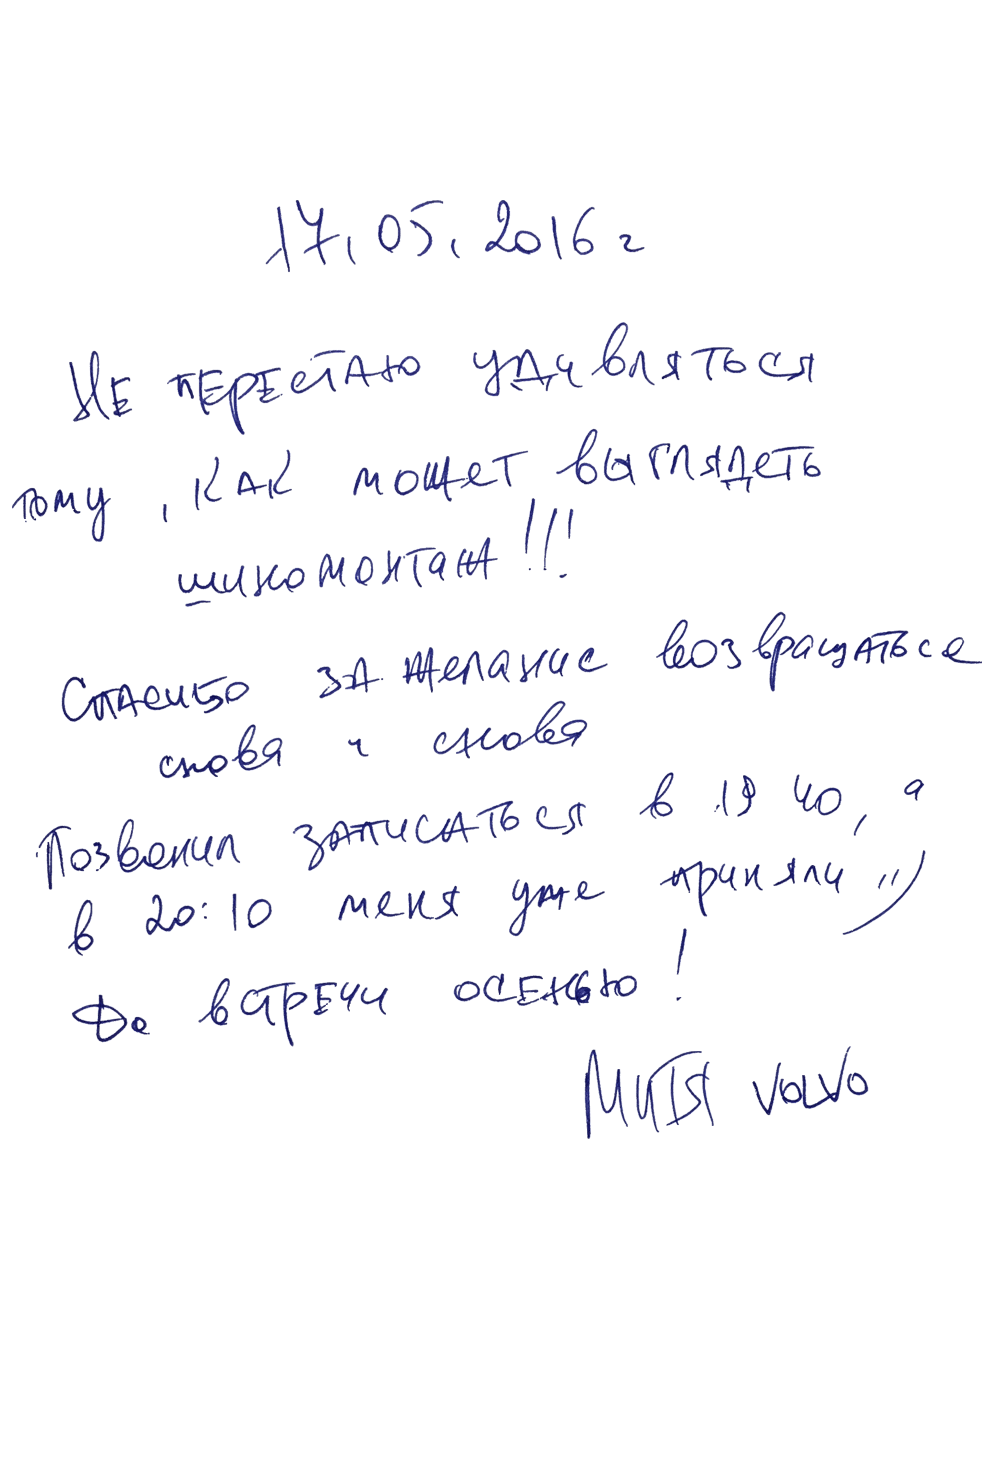 17.05.2016 г
Не перестаю удивляться
тому, как может выглядеть
шиномонтаж!!!
Спасибо за желание возвращаться
снова и снова
Позвонил записаться в 19 40, а
в 20:10 меня уже приняли ,,)
До встречи осенью!
Митя VOLVO